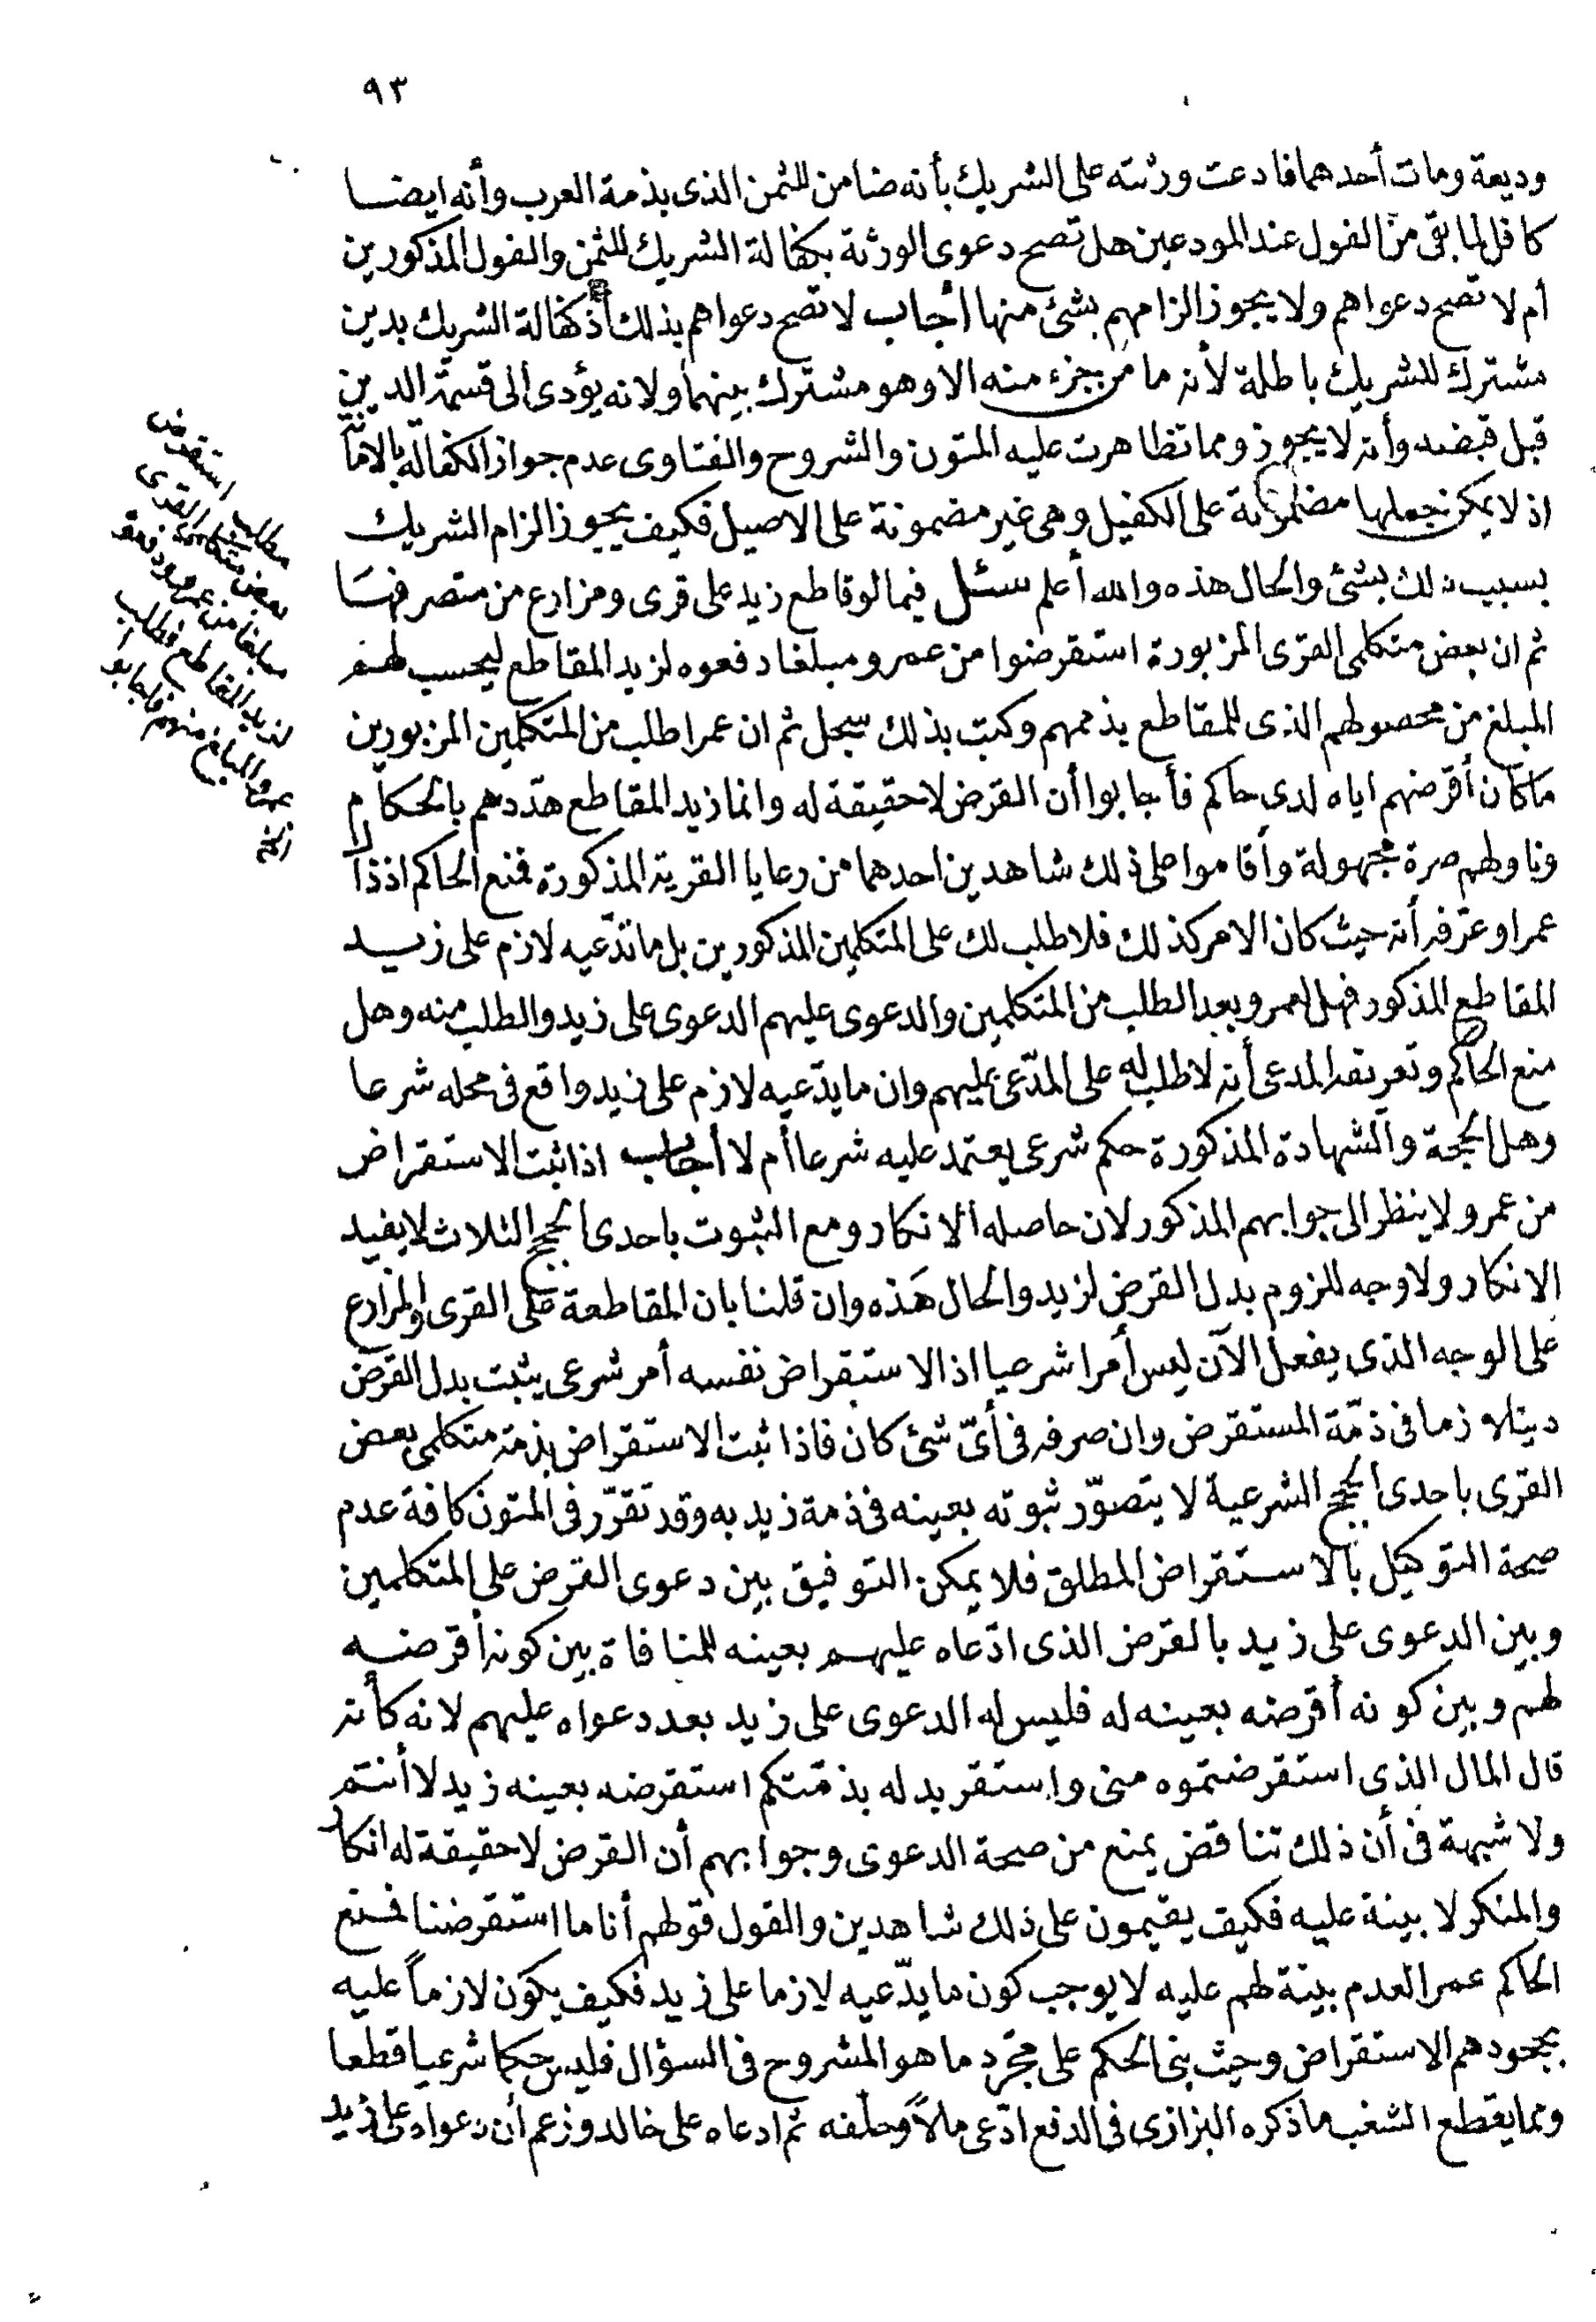 ٩٣
وديعة ومات أحدهما فادعت ورثته على الشريك بأنه ضامن للثمن الذى بذمة العرب وأنه ايضا
كافل لما بقى من الفول عند المودعين هل تصح دعوى الورثة بكفالة الشريك للثمن والفول المذكورين
أم لا تصح دعواهم ولا يجوز الزامهم بشئ منها أجاب لا تصح دعواهم بذلك اذ كفالة الشريك بدين
مشترك للشريك باطلة لأنه ما من جزء منه الا وهو مشترك بينهما ولانه يؤدى الى قسمة الدين
قبل قبضه وأنه لا يجوز ومما تظاهرت عليه المتون والشروح والفتاوى عدم جواز الكفالة بالامانة
اذ لا يمكن جعلها مضمونة على الكفيل وهى غير مضمونة على الاصيل فكيف يجوز الزام الشريك
بسبب ذلك بشئ والحال هذه والله أعلم سئل فيما لو قاطع زيد على قرى ومزارع من متصرفها
ثم ان بعض متكلمى القرى المزبورة استقرضوا من عمرو مبلغا دفعوه لزيد المقاطع ليحسب لهم
المبلغ من محصولهم الذى للمقاطع بذممهم وكتب بذلك سجل ثم ان عمرا طلب من المتكلمين المزبورين
ما كان أقرضهم اياه لدى حاكم فأجابوا أن القرض لا حقيقة له وانما زيد المقاطع هددهم بالحكام
وناولهم صرة مجهولة وأقاموا على ذلك شاهدين احدهما من رعايا القرية المذكورة فمنع الحاكم اذذاك
عمرا وعرّفه أنه حيث كان الامر كذلك فلا طلب لك على المتكلمين المذكورين بل ما تدّعيه لازم على زيد
المقاطع المذكور فهل لعمرو بعد الطلب من المتكلمين والدعوى عليهم الدعوى على زيد والطلب منه وهل
منع الحاكم وتعريفه المدعى أنه لا طلب له على المدّعى عليهم وان ما يدّعيه لازم على زيد واقع فى محله شرعا
وهل الحجة والشهادة المذكورة حكم شرعى يعتمد عليه شرعا أم لا أجاب اذا ثبت الاستقراض
من عمرو لا ينظر الى جوابهم المذكور لان حاصله الانكار ومع الثبوت باحدى الحجج الثلاث لا يفيد
الانكار ولا وجه للزوم بدل القرض لزيد والحال هذه وان قلنا بان المقاطعة على القرى والمزارع
على الوجه الذى يفعل الآن ليس أمرا شرعيا اذ الاستقراض نفسه أمر شرعى يثبت بدل القرض
دينا لازما فى ذمّة المستقرض وان صرفه فى أىّ شئ كان فاذا ثبت الاستقراض بذمة متكلمى بعض
القرى باحدى الحجج الشرعية لا يتصوّر ثبوته بعينه فى ذمة زيد به وقد تقرّر فى المتون كافة عدم
صحة التوكيل بالاستقراض المطلق فلا يمكن التوفيق بين دعوى القرض على المتكلمين
وبين الدعوى على زيد بالقرض الذى ادّعاه عليهم بعينه للمنافاة بين كونه أقرضه
لهم وبين كونه أقرضه بعينه له فليس له الدعوى على زيد بعد دعواه عليهم لانه كأنه
قال المال الذى استقرضتموه منى واستقر بدله بذمّتكم استقرضه بعينه زيد لا أنتم
ولا شبهة فى أن ذلك تناقض يمنع من صحة الدعوى وجوابهم أن القرض لا حقيقة له انكار
والمنكر لا بينة عليه فكيف يقيمون على ذلك شاهدين والقول قولهم أنا ما استقرضنا فمنع
الحاكم عمرا لعدم بينة لهم عليه لا يوجب كون ما يدّعيه لازما على زيد فكيف يكون لازماً عليه
بجحودهم الاستقراض وحيث بنى الحكم على مجرّد ما هو المشروح فى السؤال فليس حكما شرعيا قطعا
ومما يقطع الشغب ما ذكره البزازى فى الدفع ادّعى مالاً وحلّفه ثم ادعاه على خالد وزعم أن دعواه على زيد
مطلب استقرض
بعض متكلمى القرى
مبلغا من عمرو ودفعوه
لزيد المقاطع فطلب
عمرو المبلغ منهم فاجابوا
الخ